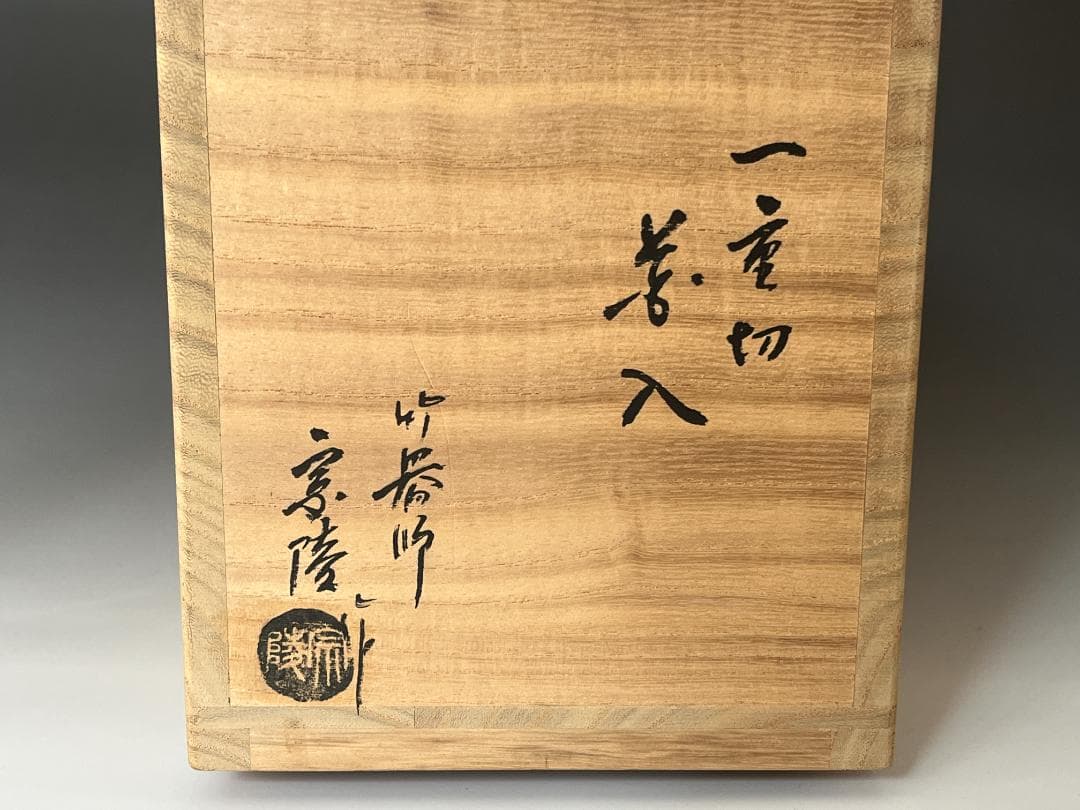 一重切
花入
竹器師
宗陵作
宗陵